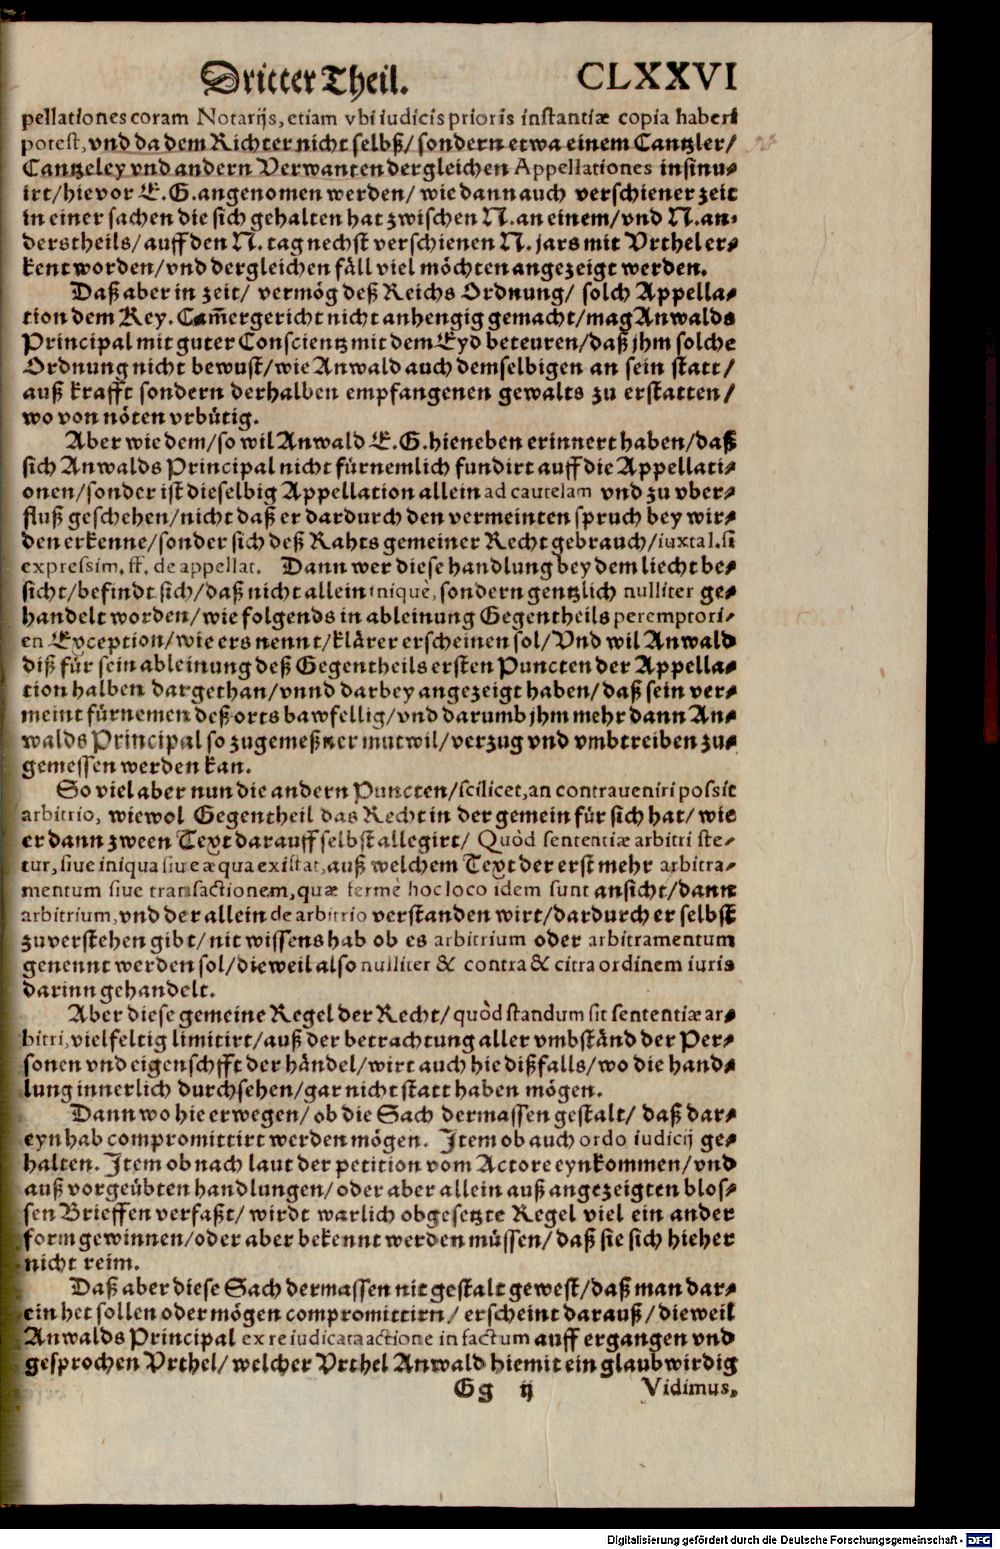 Dritter Theil. CLXXVI
pellationes coram Notarijs, etiam vbi iudicis prioris instantiæ copia haberi
potest, vnd da dem Richter nicht selbß/ sondern etwa einem Cantzler/
Cantzeley vnd andern Verwanten dergleichen Appellationes insinu-
irt/ hievor E. G. angenomen werden/ wie dann auch verschiener zeit
in einer sachen die sich gehalten hat zwischen N. an einem/ vnd N. an-
derstheils/ auff den N. tag nechst verschienen N. jars mit Vrthel er-
kent worden/ vnd dergleichen fäll viel möchten angezeigt werden.
Daß aber in zeit/ vermög deß Reichs Ordnung/ solch Appella-
tion dem Key. Cam̃ergericht nicht anhengig gemacht/ mag Anwalds
Principal mit guter Conscientz mit dem Eyd beteuren/ daß jhm solche
Ordnung nicht bewust/ wie Anwald auch demselbigen an sein statt/
auß krafft sondern derhalben empfangenen gewalts zu erstatten/
wo von nöten vrbütig.
Aber wie dem/ so wil Anwald E. G. hieneben erinnert haben/ daß
sich Anwalds Principal nicht fürnemlich fundirt auff die Appellati-
onen/ sonder ist dieselbig Appellation allein ad cautelam vnd zu vber-
fluß geschehen/ nicht daß er dardurch den vermeinten spruch bey wir-
den erkenne/ sonder sich deß Rahts gemeiner Recht gebrauch/ iuxta l. si
expressim. ff. de appellat. Dann wer diese handlung bey dem liecht be-
sicht/ befindt sich/ daß nicht allein iniquè, sondern gentzlich nulliter ge-
handelt worden/ wie folgends in ableinung Gegentheils peremptori-
en Exception/ wie ers nennt/ klärer erscheinen sol/ Vnd wil Anwald
diß für sein ableinung deß Gegentheils ersten Puncten der Appella-
tion halben dargethan/ vnnd darbey angezeigt haben/ daß sein ver-
meint fürnemen deß orts bawfellig/ vnd darumb jhm mehr dann An-
walds Principal so zugemeßner mutwil/ verzug vnd vmbtreiben zu-
gemessen werden kan.
So viel aber nun die andern Puncten/ scilicet, an contraveniri possit
arbitrio, wiewol Gegentheil das Recht in der gemein für sich hat/ wie
er dann zween Text darauff selbst allegirt/ Quòd sententiæ arbitri ste-
tur, siue iniqua siue æqua existat, auß welchem Text der erst mehr arbitra-
mentum siue transactionem, quæ fermè hoc loco idem sunt ansicht/ dann
arbitrium, vnd der allein de arbitrio verstanden wirt/ dardurch er selbst
zuverstehen gibt/ nit wissens hab ob es arbitrium oder arbitramentum
genennt werden sol/ dieweil also nulliter & contra & citra ordinem iuris
darinn gehandelt.
Aber diese gemeine Regel der Recht/ quòd standum sit sententiæ ar-
bitri, vielfeltig limitirt/ auß der betrachtung aller vmbständ der Per-
sonen vnd eigenschfft der händel/ wirt auch hie dißfalls/ wo die hand-
lung innerlich durchsehen/ gar nicht statt haben mögen.
Dann wo hie erwegen/ ob die Sach dermassen gestalt/ daß dar-
eyn hab compromittirt werden mögen. Jtem ob auch ordo iudicij ge-
halten. Jtem ob nach laut der petition vom Actore eynkommen/ vnd
auß vorgeübten handlungen/ oder aber allein auß angezeigten blos-
sen Brieffen verfaßt/ wirdt warlich obgesetzte Regel viel ein ander
form gewinnen/ oder aber bekennt werden müssen/ daß sie sich hieher
nicht reim.
Daß aber diese Sach dermassen nit gestalt gewest/ daß man dar-
ein het sollen oder mögen compromittirn/ erscheint darauß/ dieweil
Anwalds Principal ex re iudicata actione in factum auff ergangen vnd
gesprochen Vrthel/ welcher Vrthel Anwald hiemit ein glaubwirdig
Gg ij Vidimus,
Digitalisierung gefördert durch die Deutsche Forschungsgemeinschaft - DFG